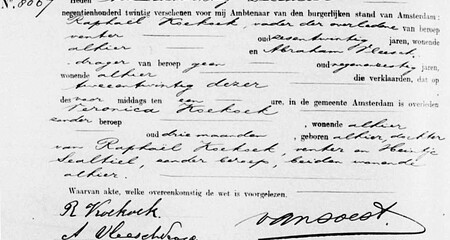 No. 8067 Heden
negentienhonderd twintig verschenen voor mij Ambtenaar van den burgerlijken stand van Amsterdam:
Raphaël Koekoek, vader der overledene van beroep
venter oud zesentwintig jaren, wonende
alhier en Abraham Vleesch-
drager van beroep geen oud negenenzestig jaren,
wonende alhier die verklaarden, dat op
tweeentwintig dezer
des voor middags ten een ure, in de gemeente Amsterdam is overleden
Veronica Koekoek
zonder beroep , wonende alhier
oud drie maanden , geboren alhier, dochter
van Raphaël Koekoek, venter en Heintje
Sealtiel, zonder beroep, beiden wonende
alhier.
Waarvan akte, welke overeenkomstig de wet is voorgelezen.
R Koekoek.
A Vleeschdrager
van Soest.